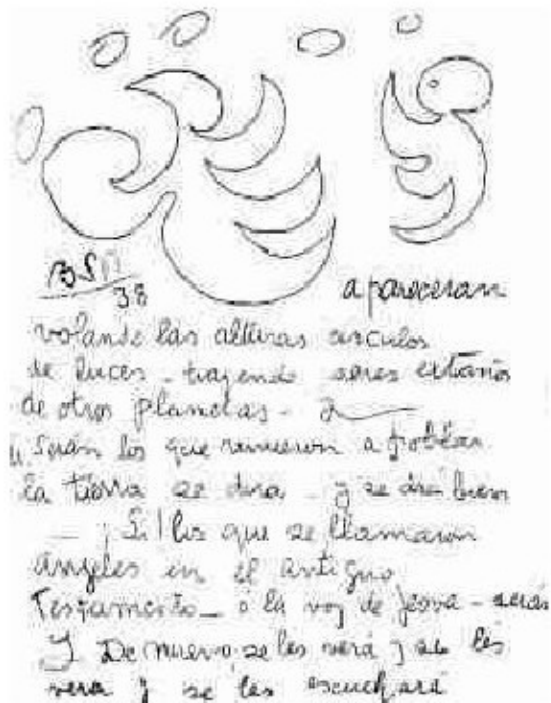 BSP
38
apareceran
volando las alturas circulos
de luces - trayendo seres extraños
de otros planetas - Y
serán los que vinieron a poblar
la tierra se dira - y se dirá bien
- ¡Si! los que se llamaron
angeles en el antiguo
Testamento - o la voz de Jeova - serán
Y De nuevo se les verá y se les
vera y se les escuchará